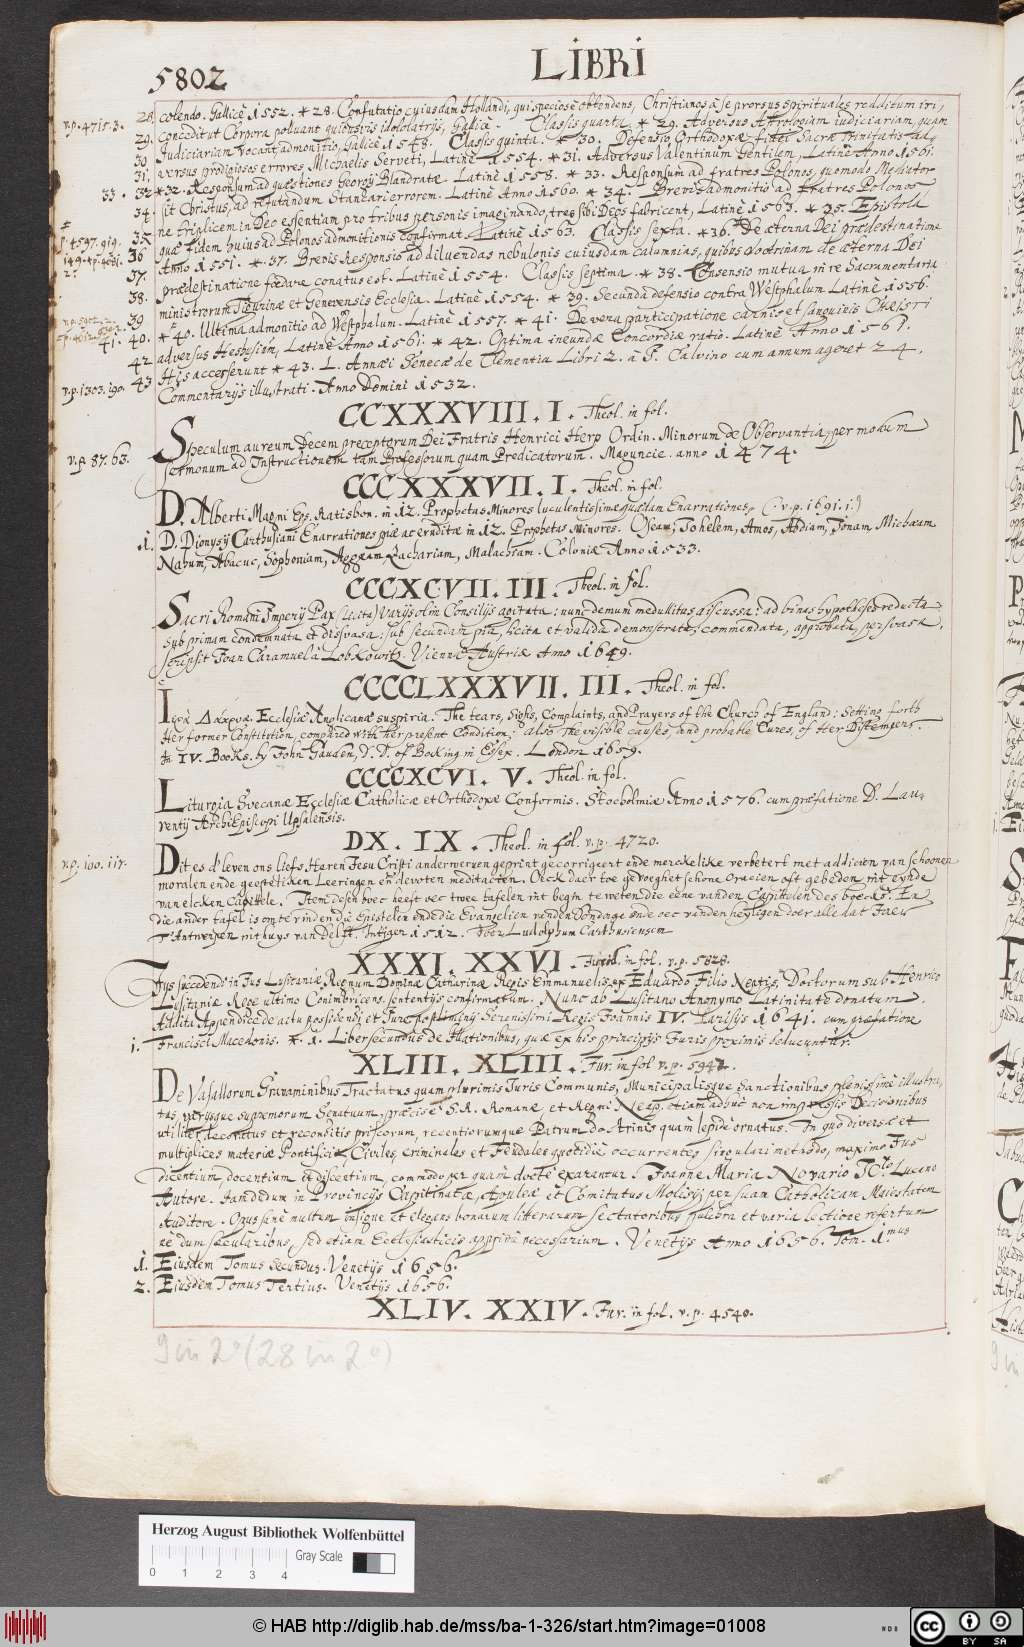 5802 LIBRI
v.p. 4715.3. 28. colendo. Gallicè 1552. * 28. Confutatio cuiusdam Hollandi, qui speciose obtendens, Christianos à se prorsus spirituales redditum iri,
29. concedit ut Corpora polluant quibusvis idololatrijs, Gallicè. Classis quarta * 29. Adversus Astrologiam iudiciariam, quam
30. Judiciariam vocant, admonitio, Gallicè 1548. Classis quinta. * 30. Defensio Orthodoxæ fidei Sacræ Trinitatis ad-
31. versus prodigiosos errores Michaelis Serveti, Latinè 1554. * 31. Adversus Valentinum Gentilem, Latinè Anno 1561.
33. 32 * 32. Responsum ad quæstiones Georgij Blandratæ Latinè 1558. * 33. Responsum ad fratres Polonos, quomodo Mediator
34. sit Christus, ad refutandum Stancari errorem. Latinè Anno 1560. * 34. Brevis admonitio ad fratres Polonos
ne triplicem in Deo essentiam pro tribus personis imaginando, tres sibi Deos fabricent, Latinè 1563. * 35. Epistola
35. quæ fidem huius ad Polonos admonitionis confirmat. Latinè 1563. Classis sexta. * 36. De æterna Dei prædestinatione
36 Anno 1551. * 37. Brevis Responsio ad diluendas nebulonis cuiusdam calumnias, quibus doctrinam de æterna Dei
37. prædestinatione fœdare conatus est. Latinè 1554. Classis septima. * 38. Consensio mutua in re Sacramentaria
38. ministrorum Tigurinæ et Genevensis Ecclesiæ. Latinè 1554. * 39. Secunda defensio contra Westphalum Latinè 1556.
39. * 40. Ultima admonitio ad Westphalum. Latinè 1557. * 41. De vera participatione carnis et sanguinis Christi
41. 40. adversus Heshusium, Latinè Anno 1561. * 42. Optima ineundæ Concordiæ ratio. Latinè Anno 1561.
42 His accesserunt * 43. L. Annæi Senecæ de Clementia Libri 2. à J. Calvino cum annum ageret 24.
v.p. 1303. 190. 43 Commentarijs illustrati. Anno Domini 1532.
CCXXXVIII. I. Theol. in fol.
v.p 87. 63. Speculum aureum Decem preceptorum Dei Fratris Henrici Herp Ordin. Minorum de Observantia, per modum
sermonum ad Instructionem tam Professorum quam Predicatorum. Maguncie. anno 1474.
CCCXXXVII. I. Theol. in fol.
D. Alberti Magni Eps. Ratisbon. in 12. Prophetas Minores luculentissimæ quædam Enarrationes. (. v.p. 1691. 1.)
1. D. Dionysij Carthusiani Enarrationes piæ ac eruditæ in 12. Prophetas Minores. Oseam, Johelem, Amos, Abdiam, Jonam Michæam
Nahum, Abacuc, Sophoniam, Aggæum Zachariam, Malachiam. Coloniæ Anno 1533.
CCCXCVII. III. Theol. in fol.
Sacri Romani Imperij Pax (licita) Varijs olim Consilijs agitata: nunc demum medullitus discussa: ad binas hypotheses reducta
sub primam condemnata et dissvasa: sub secundam pia, licita et valida demonstrata, commendata, approbata, persvasa.
scripsit Joan Caramuel à Lobkowitz. Viennæ Austriæ Anno 1649.
CCCCLXXXVII. III. Theol. in fol.
Ἱερὰ Δάκρυα. Ecclesiæ Anglicanæ suspiria. The tears, Sighs, Complaints, and Prayers of the Church of England: Setting forth
Her former Constitution, compared with her present Condition; also the visible causes, and probable Cures, of Her Distempers.
In IV. Books. by John Gauden, D. D. of Bocking in Essex. London 1659.
CCCCXCVI. V. Theol. in fol.
Liturgia Svecanæ Ecclesiæ Catholicæ et Orthodoxæ Conformis. Stocholmiæ Anno 1576. cum præfatione D. Lau-
rentij ArchiEpiscopi Upsalensis.
DX. IX. Theol. in fol. v.p. 4720.
v.p. 100. 117. Dit es d' leven ons liefs Heren Jesu Cristi anderwerven geprint gecorrigeert ende merckelike verbetert met addicien van schoonen
moralen ende geesteliken Leeringen en devoten meditacien. Oeck daer toe gevoeghet schone Oracien oft gebeden int eynde
van elcken Capittele. Item desen boec heeft oec twee tafelen int begin te weten die eene vanden Capittulen des boecks. En
die ander tafel is om te vinden die Epistelen ende die Evangelien vanden Sondage ende oec vanden heyligen doer alle dat Jaer
T'Antwerpen int huys van Delft. Int Jaer 1512. Doer Ludolphum Carthusiensem
XXXI. XXVI. Jurid. in fol. v.p. 5828.
Jus succedendi in Jus Lusitaniæ Regnum Dominæ Catharinæ Regis Emmanuelis, ex Eduardo Filio Neptis, Doctorum sub Henrico
Lusitaniæ Rege ultimo Conimbricens. sententijs confirmatum. Nunc ab Lusitano Anonymo Latinitate donatum.
Addita Appendice de actu possidendi et Jure postliminij Serenissimi Regis Joannis IV. Parisijs 1641. cum præfatione
1. Francisci Macedonis. *. 1. Liber secundus de Illationibus, quæ ex his principijs Juris proximis deducuntur.
XLIII. XLIII. Jur. in fol v.p. 5942.
De Vasallorum Gravaminibus Tractatus quam plurimis Juris Communis, Municipalisque Sanctionibus, plenissime illustra-
tus, utrusque supremorum Senatuum, præcise S.R. Romanæ, et Regni Neap. etiam adhuc non impressis Decisionibus
utiliter decoratus et reconditis priscorum, recentiorumque Patrum Doctrinis quàm lepide ornatus. In quo diversæ et
multiplices materiæ Pontificiæ, Civiles, criminales et Feudales quotidie occurrentes, singulari methodo, maximo Jus
Dicentium, docentium et discentium, commodo per quàm docte exarantur. Joanne Maria Novario JCto Lucano
Autore. Jamdudum in Provincijs Capitinatæ, Apuleæ et Comitatus Molisij, per suam Catholicam Maiestatem
Auditore. Opus sane multum insigne et elegans bonarum litterarum sectatoribus pulchra et varia lectione refertum
ne dum sæcularibus, sed etiam Ecclesiasticis apprime necessarium. Venetijs Anno 1656. Tom. 1.mus
1. Eiusdem Tomus secundus. Venetijs 1656.
2. Eiusdem Tomus Tertius. Venetijs 1656.
XLIV. XXIV. Jur. in fol. v.p. 4540.
9 in 2° (28 in 2°)
Herzog August Bibliothek Wolfenbüttel
Gray Scale
0 1 2 3 4
© HAB http://diglib.hab.de/mss/ba-1-326/start.htm?image=01008
cc BY SA